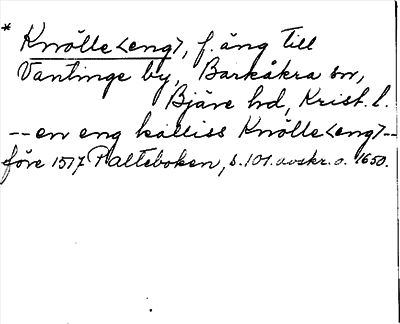 * Knölle<eng>, f. äng till
Vantinge by, Barkåkra sn,
Bjäre hd, Krist. l.
--en eng kalliss Knölle<eng>--
före 1517 Palteboken, s. 101. avskr. o. 1650.